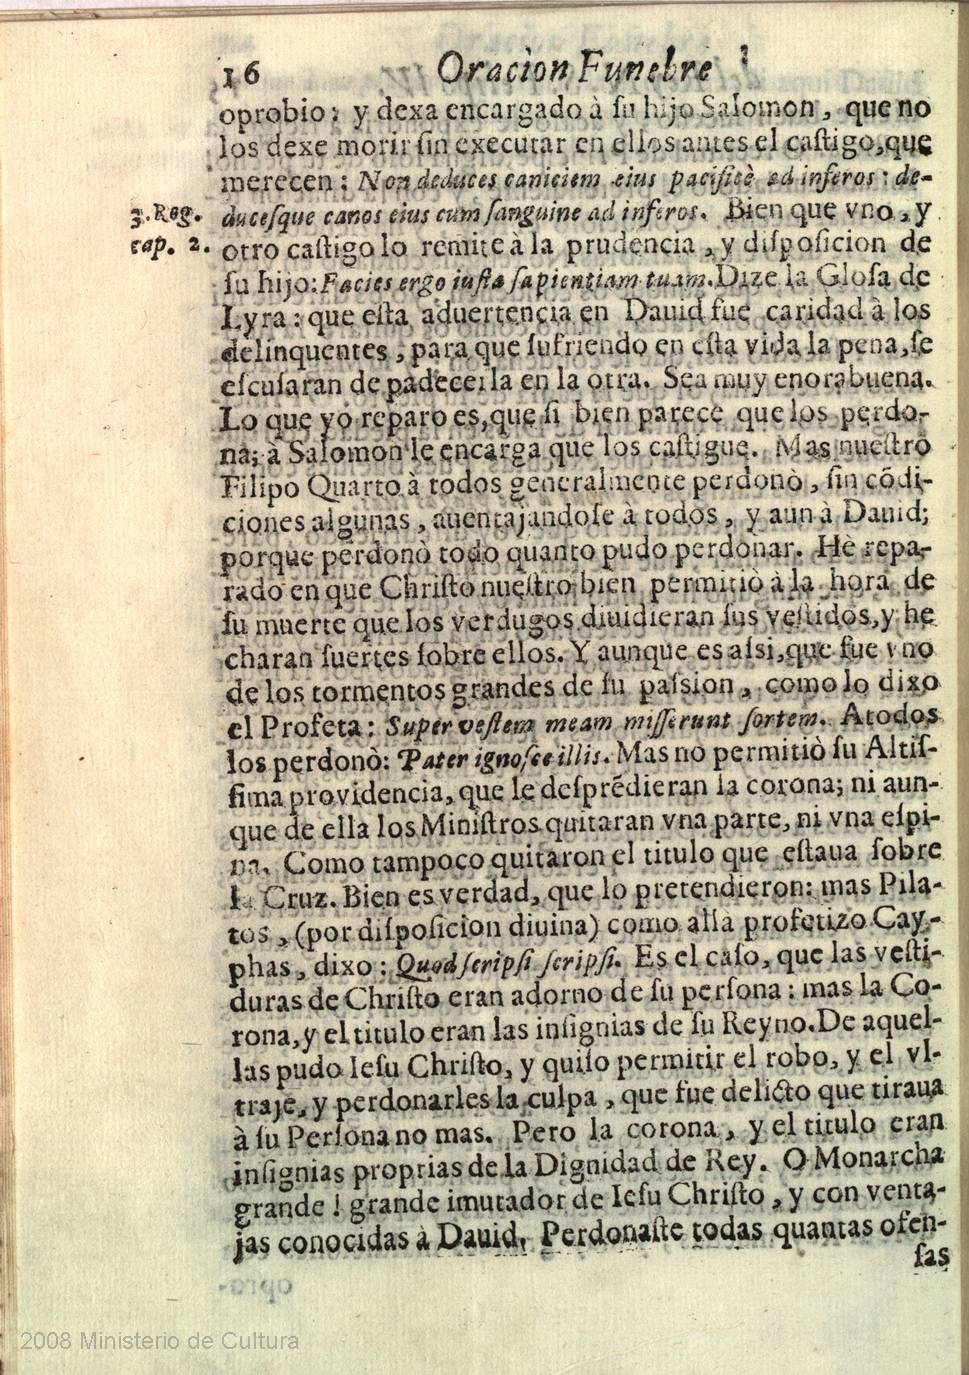 16 Oracion Funebre
oprobio: y dexa encargado à ſu hijo Salomon, que no
los dexe morir ſin executar en ellos antes el caſtigo, que
merecen: Non deduces caniciem eius pacificè ad inferos: de-
3. Reg. duceſque canos eius cum ſanguine ad inferos. Bien que vno, y
cap. 2. otro caſtigo lo remite à la prudencia, y diſpoſicion de
ſu hijo: Facies ergo iuſta ſapientiam tuam. Dize la Gloſa de
Lyra: que eſta aduertencia en Dauid fue caridad à los
delinquentes, para que ſufriendo en eſta vida la pena, ſe
eſcuſaran de padecerla en la otra. Sea muy enorabuena.
Lo que yo reparo es, que ſi bien parece que los perdo-
na; à Salomon le encarga que los caſtigue. Mas nueſtro
Filipo Quarto à todos generalmente perdonò, ſin cõdi-
ciones algunas, auentajandoſe à todos, y aun à Dauid;
porque perdonò todo quanto pudo perdonar. Hè repa-
rado en que Chriſto nueſtro bien permitiò à la hora de
ſu muerte que los verdugos diuidieran ſus veſtidos, y he
charan ſuertes ſobre ellos. Y aunque es aſsi, que fue vno
de los tormentos grandes de ſu paſsion, como lo dixo
el Profeta: Super veſtem meam miſſerunt ſortem. A todos
los perdonò: Pater ignoſce illis. Mas no permitiò ſu Altiſ-
ſima providencia, que le deſprẽdieran la corona; ni aun-
que de ella los Miniſtros quitaran vna parte, ni vna eſpi-
na. Como tampoco quitaron el titulo que eſtaua ſobre
la Cruz. Bien es verdad, que lo pretendieron: mas Pila-
tos, (por diſpoſicion diuina) como allà profetizo Cay-
phas, dixo: Quod ſcripſi ſcripſi. Es el caſo, que las veſti-
duras de Chriſto eran adorno de ſu perſona: mas la Co-
rona, y el titulo eran las inſignias de ſu Reyno. De aquel-
las pudo Ieſu Chriſto, y quiſo permitir el robo, y el vl-
traje, y perdonarles la culpa, que fue delicto que tiraua
à ſu Perſona no mas. Pero la corona, y el titulo eran
inſignias proprias de la Dignidad de Rey. O Monarcha
grande! grande imutador de Ieſu Chriſto, y con venta-
jas conocidas à Dauid. Perdonaſte todas quantas ofen-
ſas
2008 Ministerio de Cultura